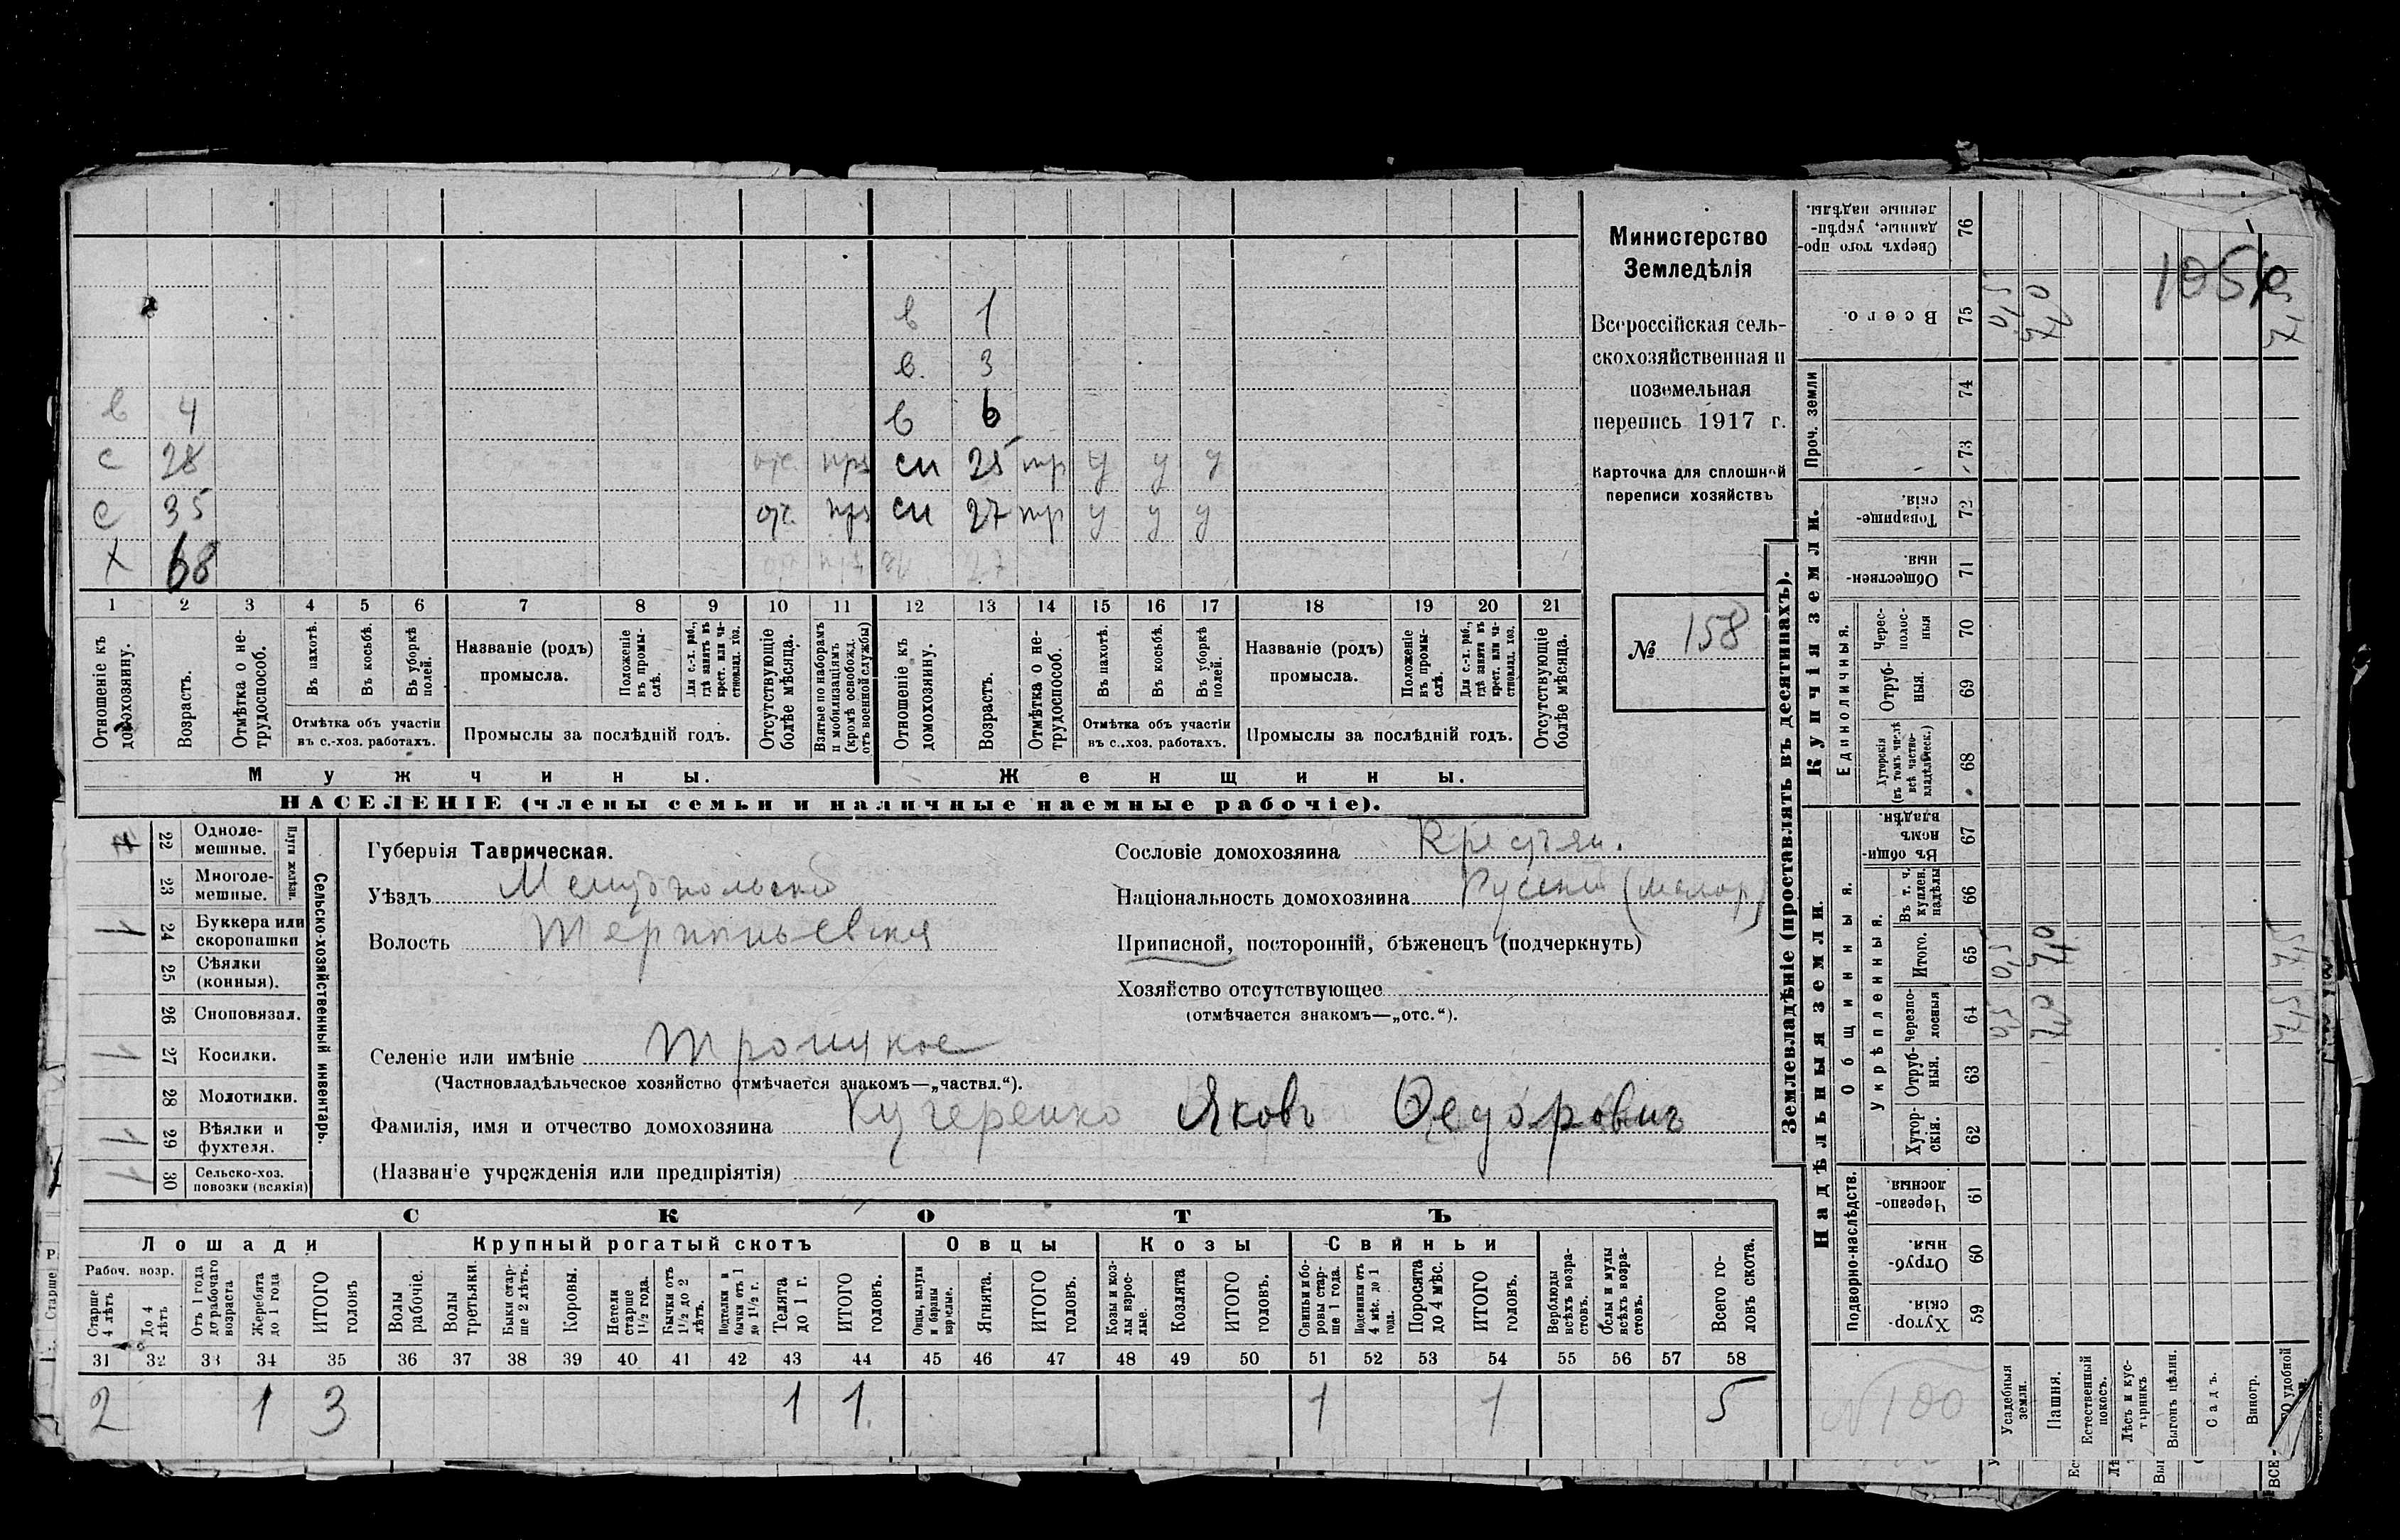 в 1
в. 3
в 4 в 6
с 28 отс. прз сн 25 тр у у у
с 35 отс. прз сн 27 тр у у у
х 68
1 2 3 4 5 6 7 8 9 10 11 12 13 14 15 16 17 18 19 20 21
Отношеніе къ домохозяину.
Возрастъ.
Отмѣтка о нетрудоспособ.
Въ пахотѣ.
Въ косьбѣ.
Въ уборкѣ полей.
Отмѣтка объ участіи
въ с.-хоз. работахъ.
Названіе (родъ)
промысла.
Положеніе въ промыслѣ.
Для с.-х. раб., гдѣ занятъ въ крест. или частновлад. хоз.
Промыслы за послѣдній годъ.
Отсутствующіе болѣе мѣсяца.
Взятые по наборамъ и мобилизаціямъ (кромѣ освобожд. отъ военной службы)
Отношеніе къ домохозяину.
Возрастъ.
Отмѣтка о нетрудоспособ.
Въ пахотѣ.
Въ косьбѣ.
Въ уборкѣ полей.
Отмѣтка объ участіи
въ с.-хоз. работахъ.
Названіе (родъ)
промысла.
Положеніе въ промыслѣ.
Для с.-х. раб., гдѣ заняты въ крест. или частновлад. хоз.
Промыслы за послѣдній годъ.
Отсутствующіе болѣе мѣсяца.
Мужчины. Женщины.
НАСЕЛЕНІЕ (члены семьи и наличные наемные рабочіе).
Министерство
Земледѣлія
Всероссійская сель-
скохозяйственная и
поземельная
перепись 1917 г.
Карточка для сплошной
переписи хозяйствъ
№ 158
Сельско-хозяйственный инвентарь.
Плуги желѣзн.
22 Одноле-
мешные.
23 Многоле-
мешные.
1 24 Буккера или
скоропашки
25 Сѣялки
(конныя).
26 Сноповязал.
1 27 Косилки.
28 Молотилки.
1 29 Вѣялки и
фухтеля.
1 30 Сельско-хоз.
повозки (всякія)
Губернія Таврическая.
Уѣздъ Мелитопольскій
Волость Терпиньевская
Селеніе или имѣніе Троицкое
(Частновладѣльческое хозяйство отмѣчается знакомъ—„частвл.“).
Фамилія, имя и отчество домохозяина Кучеренко Яковъ Ѳедоровичъ
(Названіе учрежденія или предпріятія)
Сословіе домохозяина Крестьян.
Національность домохозяина Русскій (малор)
Приписной, посторонній, бѣженецъ (подчеркнуть)
Хозяйство отсутствующее
(отмѣчается знакомъ—„отс.“).
СКОТЪ
Лошади Крупный рогатый скотъ Овцы Козы Свиньи
Рабоч. возр.
Старше 4 лѣтъ
До 4 лѣтъ
Отъ 1 года до рабочаго возраста
Жеребята до 1 года
ИТОГО головъ
Волы рабочіе.
Волы третьяки.
Быки старше 2 лѣтъ.
Коровы.
Нетели старше 1½ года.
Бычки отъ 1½ до 2 лѣтъ.
Подтелки и бычки отъ 1 до 1½ г.
Телята до 1 г.
ИТОГО головъ.
Овцы, валухи и бараны взрослые.
Ягнята.
ИТОГО головъ.
Козы и козлы взрослые.
Козлята
ИТОГО головъ.
Свиньи и боровы старше 1 года.
Подсвинки отъ 4 мѣс. до 1 года.
Поросята до 4 мѣс.
ИТОГО головъ.
Верблюды всѣхъ возрастовъ.
Ослы и мулы всѣхъ возрастовъ.
Всего головъ скота.
31 32 33 34 35 36 37 38 39 40 41 42 43 44 45 46 47 48 49 50 51 52 53 54 55 56 57 58
2 1 3 1 1 1 1 5
Землевладѣніе (проставлять въ десятинахъ).
Надѣльныя земли.
Купчія земли.
Проч. земли
Подворно-наслѣдств.
Общинныя.
Укрѣпленныя.
Единоличныя.
Хуторскія. 59
Отрубныя. 60
Черезполосныя. 61
Хуторскія. 62
Отрубныя. 63
Черезполосныя 64
Итого. 65
Въ т. ч. куплен. надѣлы 66
Въ общинномъ владѣн. 67
Хуторскія (въ томъ числѣ всѣ частновладѣльческ.) 68
Отрубныя. 69
Чересполосныя 70
Общественныя 71
Товарищескія. 72
73
74
Всего. 75
Сверхъ того проданные, укрѣпленные надѣлы. 76
Усадебныя земли.
Пашня.
Естественный покосъ.
Лѣсъ и кустарникъ
Выгонъ цѣлин.
Садъ.
Виногр.